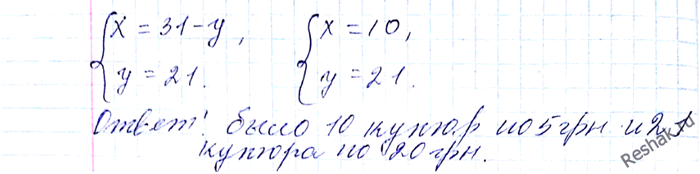 {x = 31 - y, {x = 10,
{y = 21. {y = 21.
Ответ: было 10 купюр по 5 грн и 21
купюра по 20 грн.
Reshak.ru